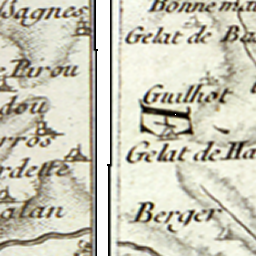 Bagnes
Pirou
dou
rros
rdette
alan
Bonnema
Gelat de Ba
Guilhot
Gelat de Ha
Berger